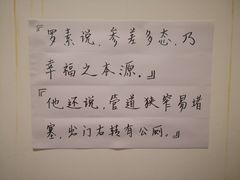 『罗素说，参差多态，乃
幸福之本源。』
『他还说，管道狭窄易堵
塞，出门右转有公厕。』